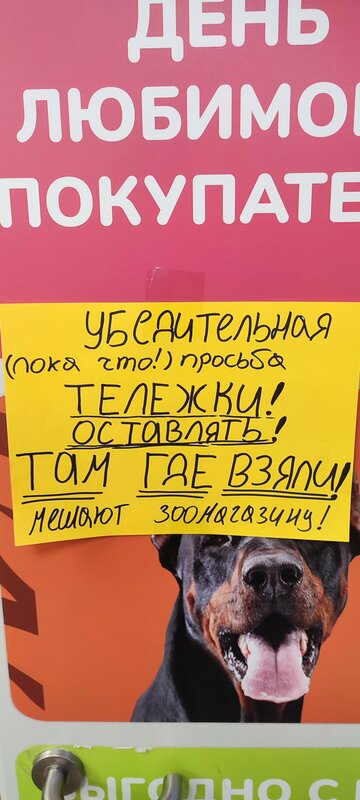 ДЕНЬ
ЛЮБИМО
ПОКУПАТЕ
УБЕДИТЕЛЬНАЯ
(пока что!) просьба
ТЕЛЕЖКИ!
ОСТАВЛЯТЬ!
ТАМ ГДЕ ВЗЯЛИ!
мешают зоомагазину!
ВЫГОДНО С